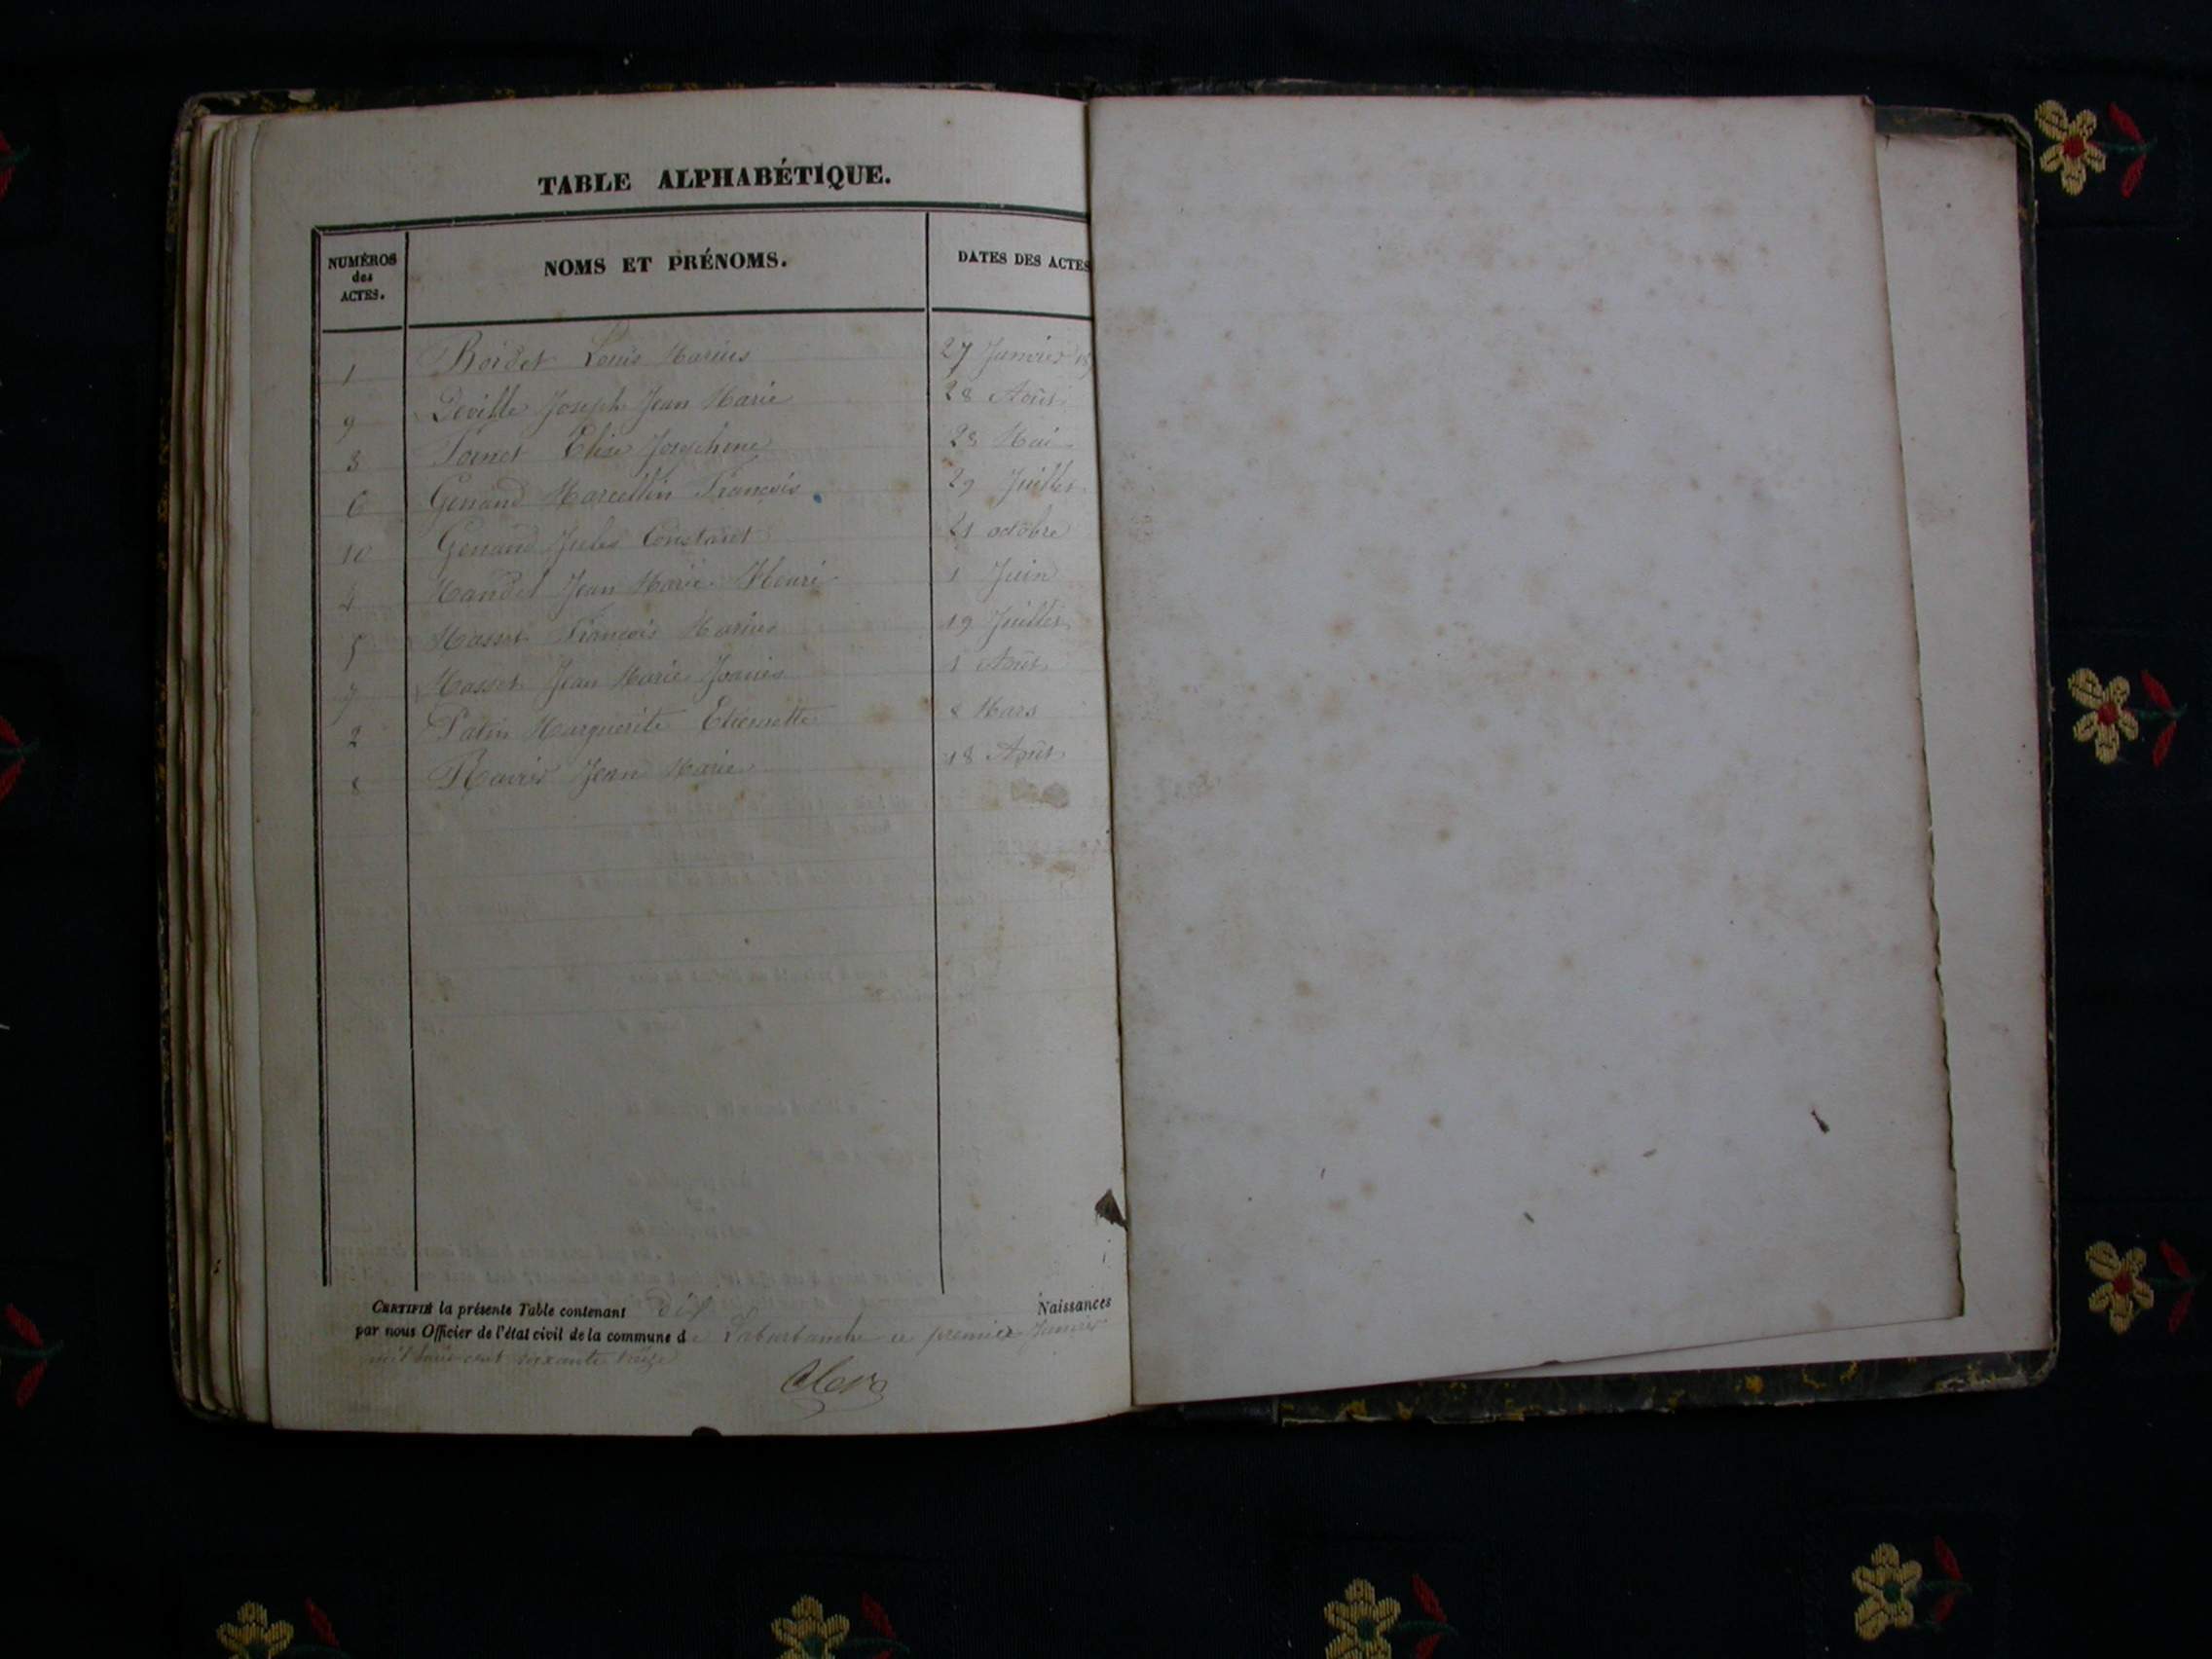 TABLE ALPHABÉTIQUE.
NUMÉROS des ACTES. NOMS ET PRÉNOMS. DATES DES ACTES
1 Boidet Louis Marius 27 Janvier
9 Deville Joseph Jean Marie 28 Août
3 Elise Josephine 28 Mai
6 Genand Marcellin François 29 Juillet
10 Genand Jules Constant 21 octobre
4 Jean Marie Henri 1 Juin
5 Masset François Marius 19 Juillet
7 Masset Jean Marie Joanies 1 Août
2 Patin Marguerite Etiennette 8 Mars
8 Ravier Jean Marie 18 Août
CERTIFIÉ la présente Table contenant dix Naissances
par nous Officier de l'état civil de la commune de ce premier Janvier
mil huit cent soixante treize